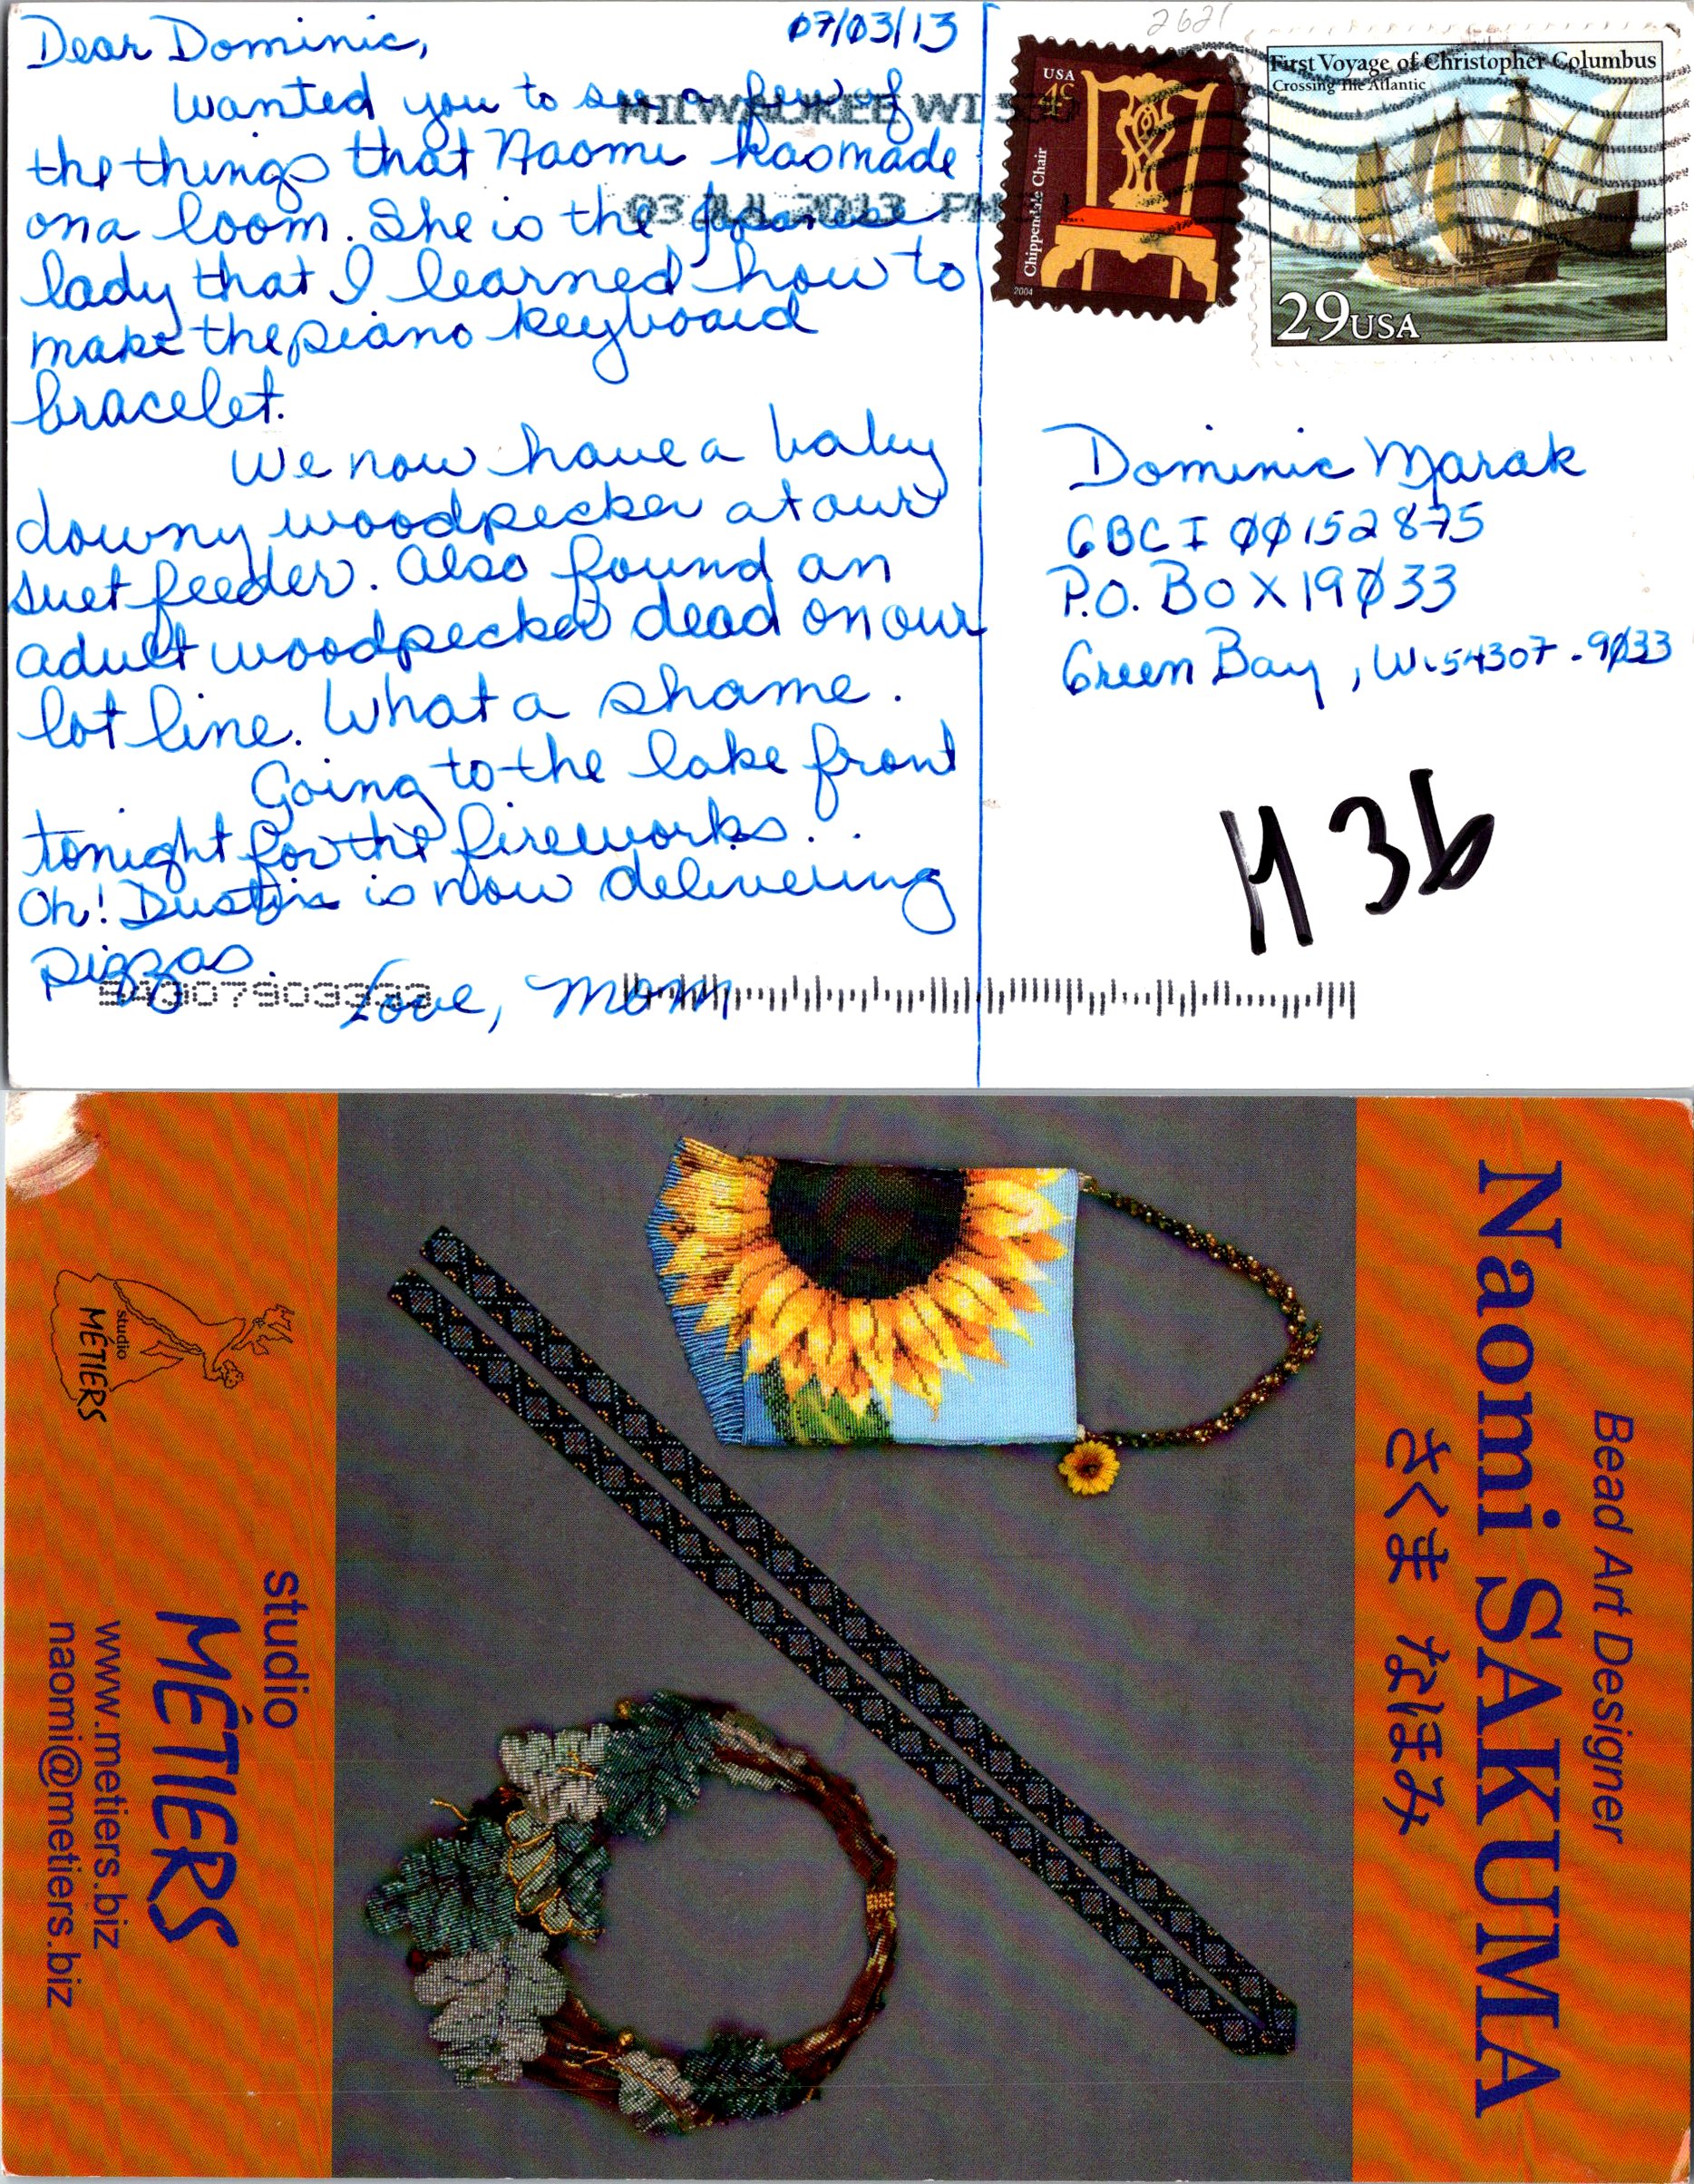 07/03/13
Dear Dominic,
Wanted you to see a few of
the things that Naomi has made
on a loom. She is the Japanese
lady that I learned how to
make the piano keyboard
bracelet.
We now have a baby
downy woodpecker at our
suet feeder. Also found an
adult woodpecker dead on our
lot line. What a shame.
Going to the lake front
tonight for the fireworks..
Oh! Dustin is now delivering
pizzas.
Love, Mom
2621
MILWAUKEE WI 530
03 JUL 2013 PM
USA
4c
Chippendale Chair
2004
First Voyage of Christopher Columbus
Crossing The Atlantic
29USA
Dominic Marak
GBCI 00152875
P.O. Box 19033
Green Bay, Wi 54307-9033
H 36
Bead Art Designer
Naomi SAKUMA
さくま なほみ
studio
MÉTIERS
studio
MÉTIERS
www.metiers.biz
naomi@metiers.biz